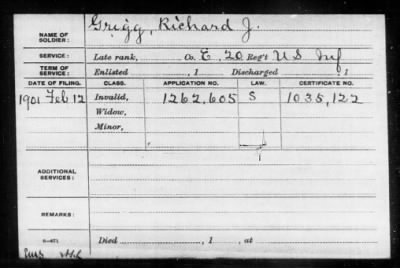 NAME OF SOLDIER: Grigg, Richard J.
SERVICE: Late rank, Co. E, 20 Reg't U.S. Inf
TERM OF SERVICE: Enlisted , 1 Discharged , 1
DATE OF FILING. CLASS. APPLICATION NO. LAW. CERTIFICATE NO.
1901 Feb 12 Invalid, 1262,605 S 1035,122
Widow,
Minor,
ADDITIONAL SERVICES:
REMARKS:
Died , 1 , at
6-471